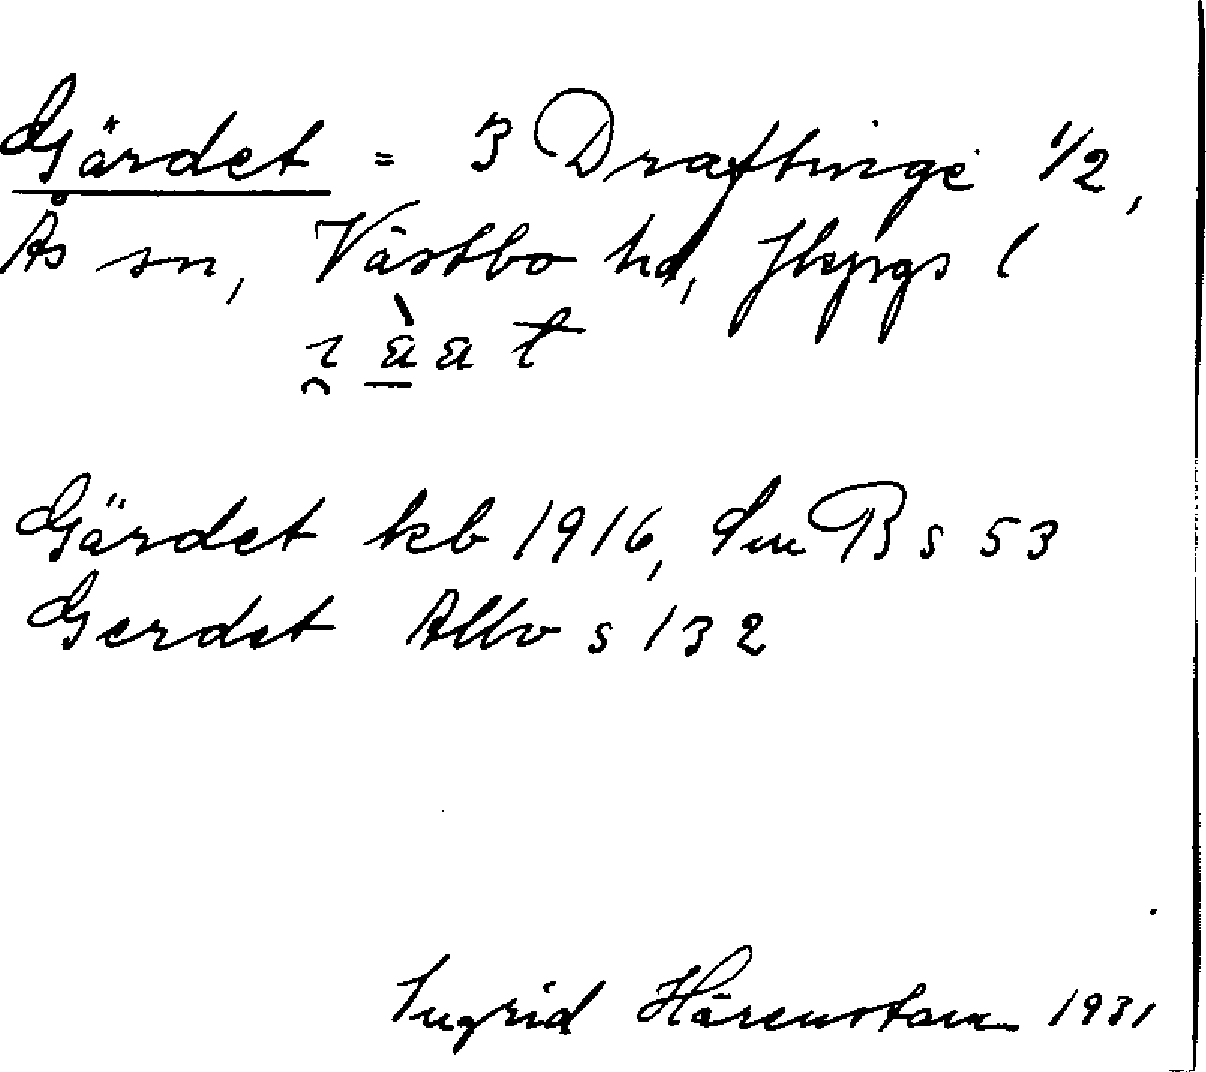 Gärdet = 3 Draftinge 1/2,
Ås sn, Västbo hd, Jkpgs l
Gärdet kb 1916, Sm B s 53
Gerdet Allv s 132
Ingrid Härenstam 1931